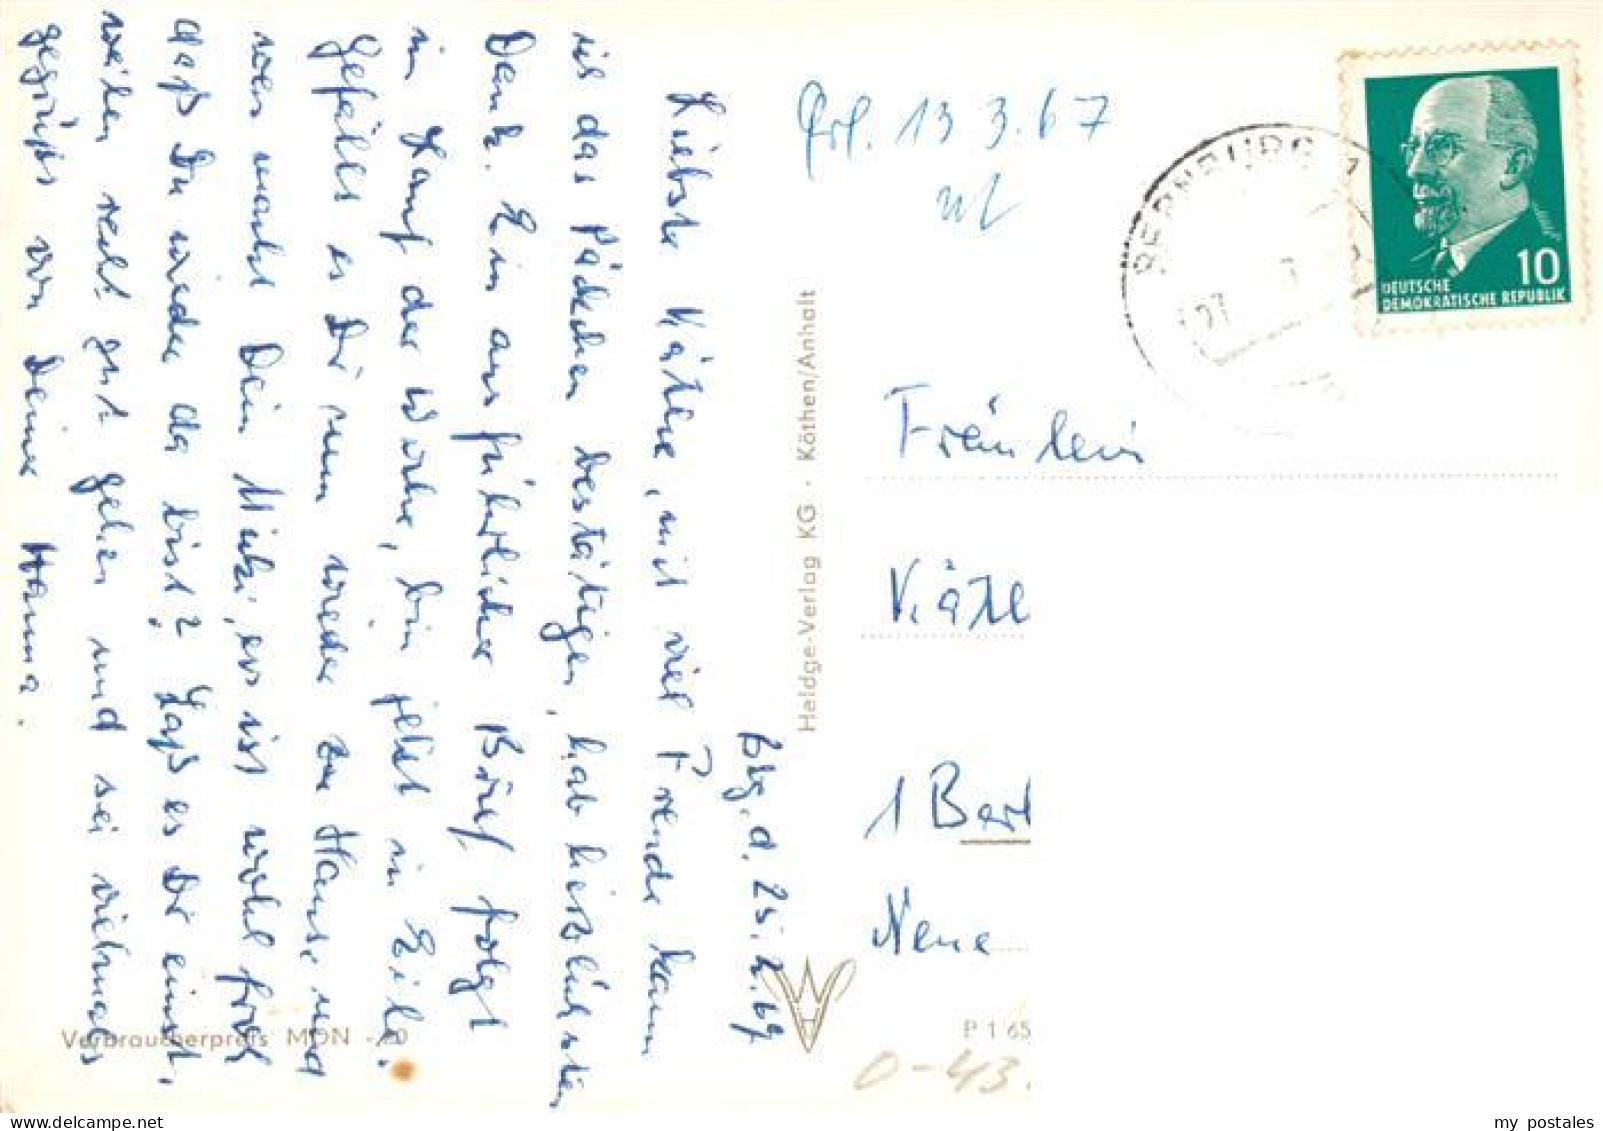 Bbg. d. 25. 2. 67
Liebste Käthe, mit viel Freude kann
ich das Päckchen bestätigen, hab herzlichsten
Dank. Ein ausführlicher Brief folgt
im Lauf der Woche, bin jetzt in Eile.
Gefällt es Dir nun wieder zu Hause und
was macht Dein Mutzi, es ist wohl froh
daß Du wieder da bist? Laß es Dir einst,
weilen recht gut gehen und sei vielmals
gegrüßt von Deiner Hanna.
Verbraucherpreis MDN -,20
Heldge-Verlag KG · Köthen/Anhalt
Erl. 13 3. 67
BERNBURG 1
10
DEUTSCHE
DEMOKRATISCHE REPUBLIK
Fräulein
Käthe
1 Berl
Neue
P 1 65
0-43.
my postales